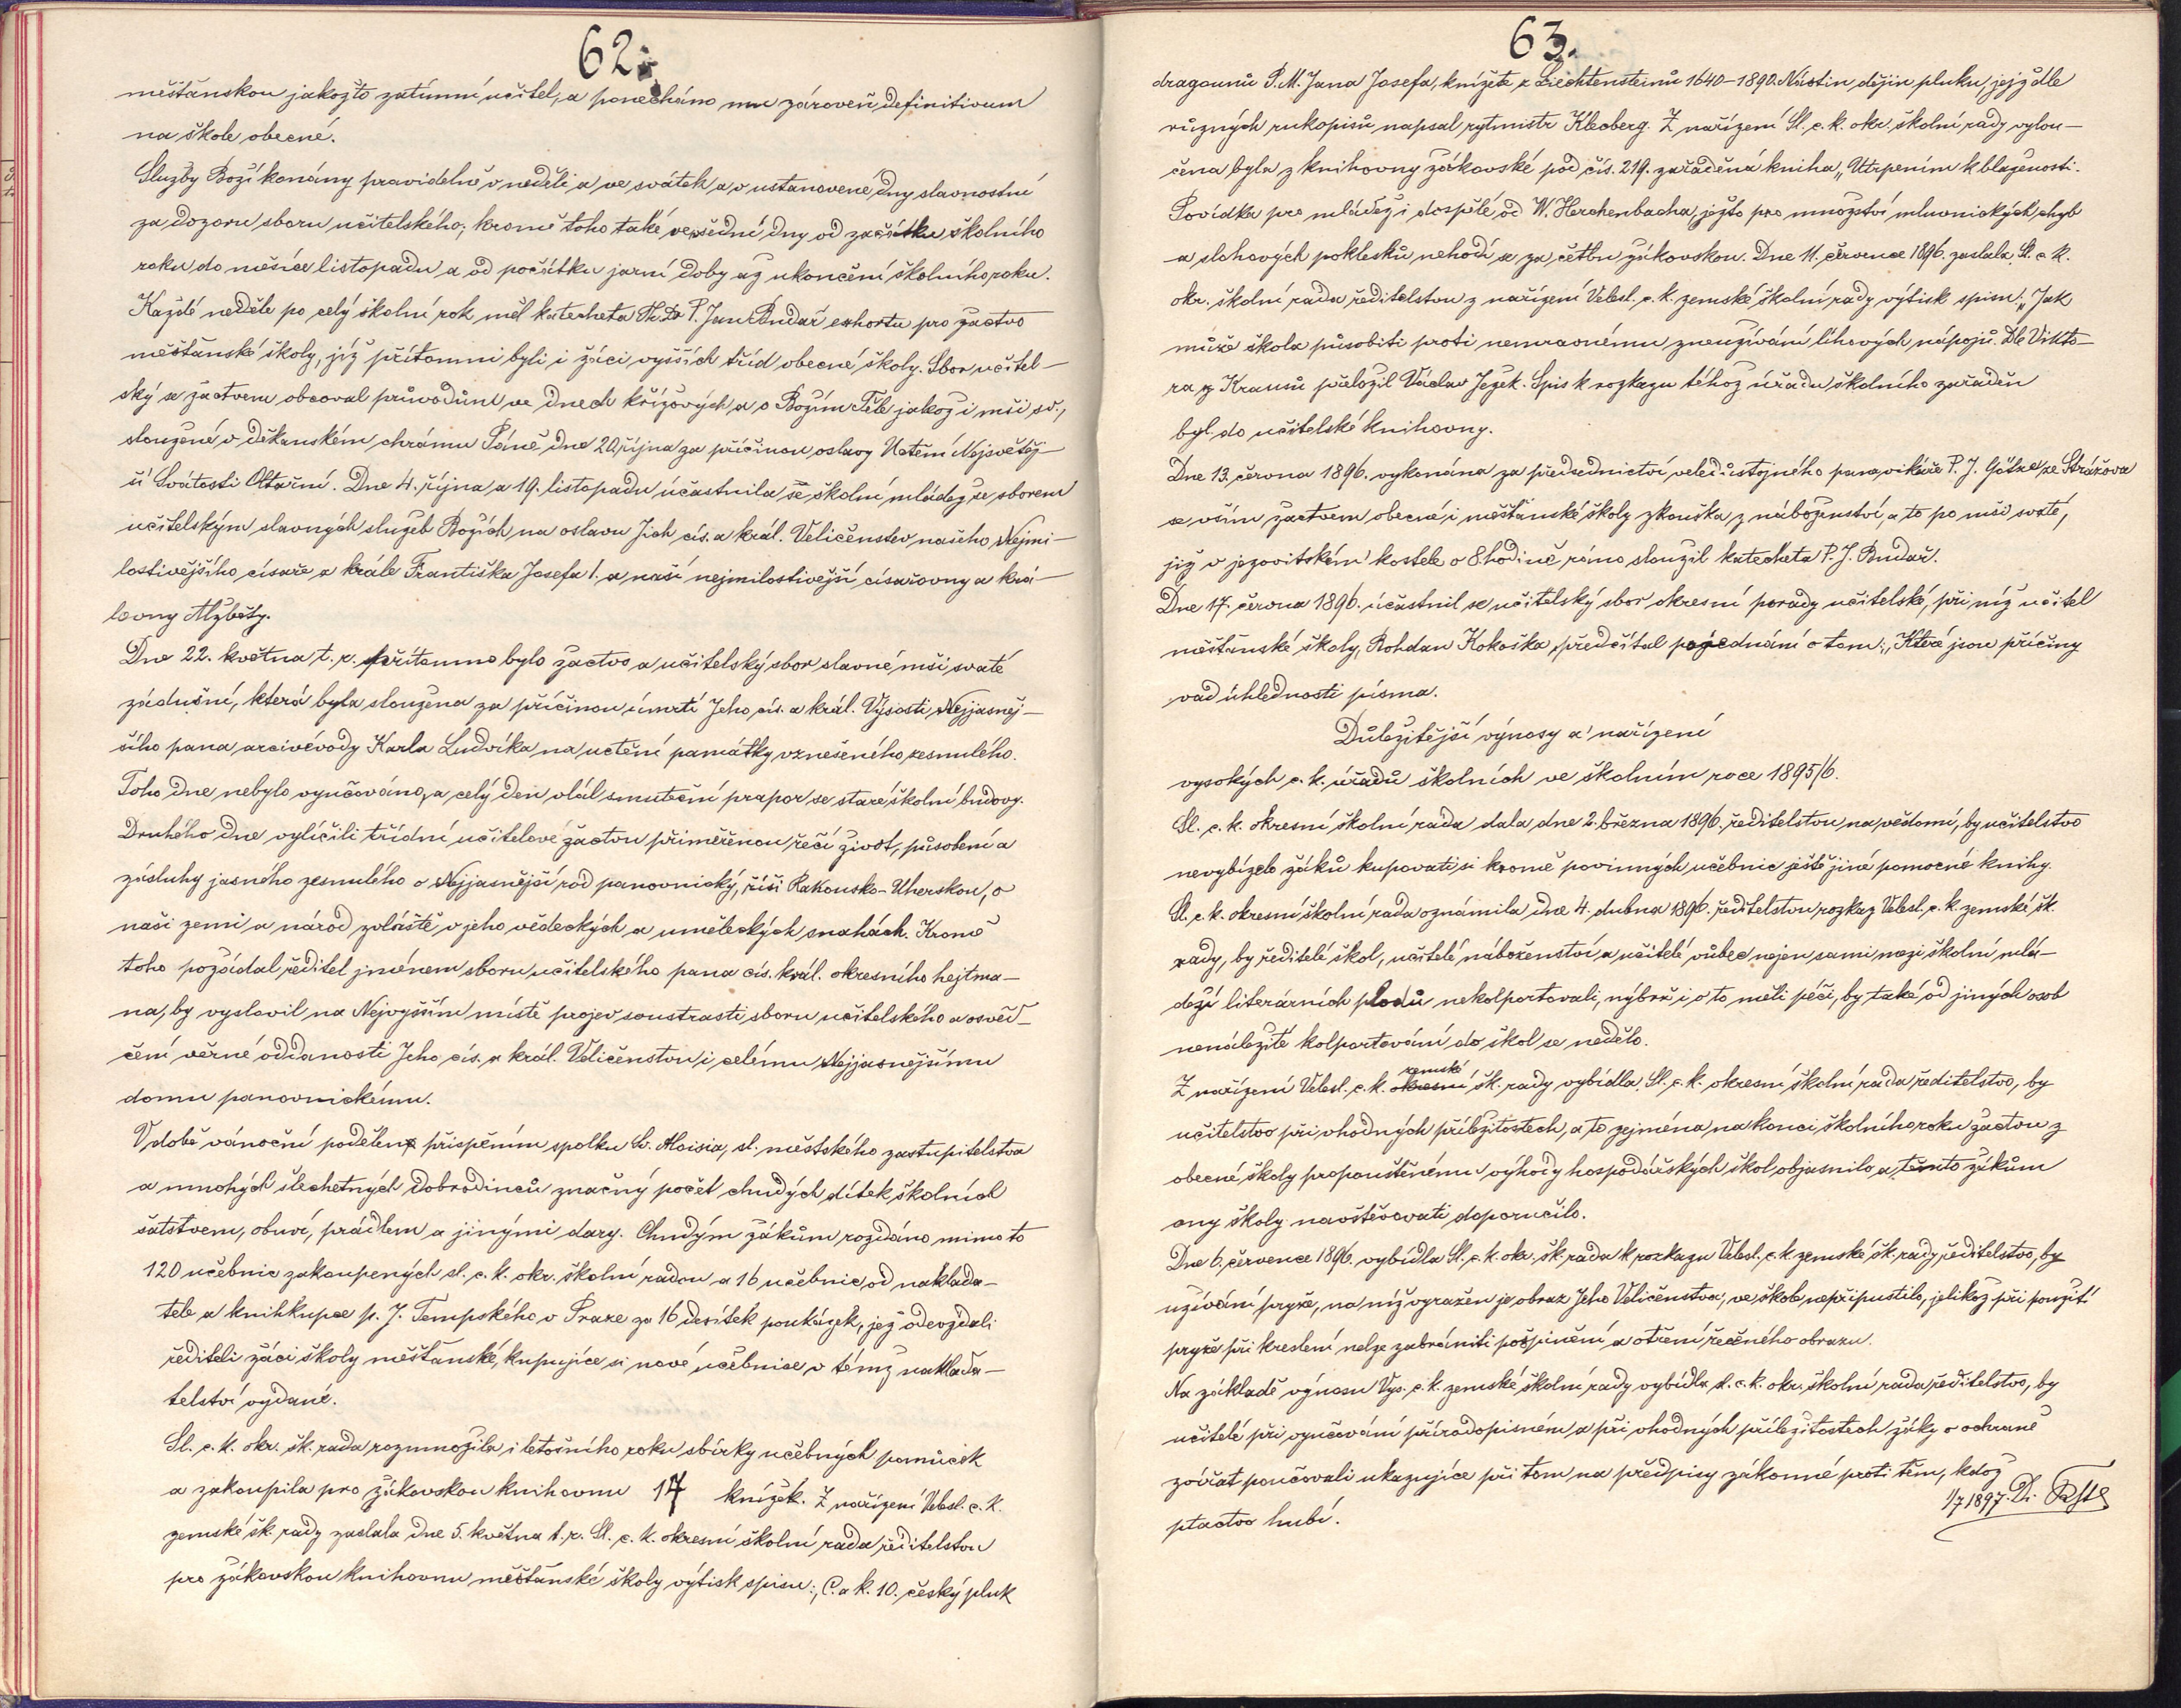 62.
měšťanskou jakožto zatímní učitel, a ponecháno mu zároveň definitivum
na škole obecné.
Služby Boží konány pravidelně v neděli a ve svátek a v ustanovené dny slavnostní
za dozoru sboru učitelského; kromě toho také ve všední dny od začátku školního
roku do měsíce listopadu a od počátku jarní doby až ukončení školního roku.
Každé neděle po celý školní rok měl katecheta Th. Dr P. Jan Budař exhortu pro žactvo
měšťanské školy, jíž přítomni byli i žáci vyšších tříd obecné školy. Sbor učitel–
ský se žactvem obcoval průvodům ve dnech křížových a o Božím Těle jakož i mši sv.,
sloužené v děkanském chrámu Páně dne 20. října za příčinou oslavy Uctění Nejsvětěj–
ší Svátosti Oltářní. Dne 4. října a 19. listopadu účastnila se školní mládež se sborem
učitelským slavných služeb Božích na oslavu Jich cís. a král. Veličenstev našeho Nejmi–
lostivějšího císaře a krále Františka Josefa I. a naší nejmilostivější císařovny a krá–
lovny Alžběty.
Dne 22. května t. r. přítomno bylo žactvo a učitelský sbor slavné mši svaté
zádušní, která byla sloužena za příčinou úmrtí Jeho cís. a král. Výsosti, Nejjasněj–
šího pana arcivévody Karla Ludvíka na uctění památky vznešeného zesnulého.
Toho dne nebylo vyučováno, a celý den vlál smuteční prapor se staré školní budovy.
Druhého dne vylíčili třídní učitelové žactvu přiměřenou řečí život, působení a
zásluhy jasného zesnulého o Nejjasnější rod panovnický, říši Rakousko-Uherskou, o
naši zemi a národ zvláště v jeho vědeckých a uměleckých snahách. Kromě
toho požádal ředitel jménem sboru učitelského pana cís. král. okresního hejtma–
na, by vyslovil na Nejvyšším místě projev soustrasti sboru učitelského a osvěd–
čení věrné oddanosti Jeho cís. a král. Veličenstvu i celému Nejjasnějšímu
domu panovnickému.
V době vánoční podělen přispěním spolku Sv. Aloisia, sl. městského zastupitelstva
a mnohých šlechetných dobrodinců značný počet chudých dítek školních
šatstvem, obuví, prádlem a jinými dary. Chudým žákům rozdáno mimo to
120 učebnic zakoupených sl. c. k. okr. školní radou a 16 učebnic od naklada–
tele a knihkupce p. J. Tempského v Praze za 16 desítek poukázek, jež odevzdali
řediteli žáci školy měšťanské, kupujíce si nové učebnice v témž naklada–
telství vydané.
Sl. c. k. okr. šk. rada rozmnožila i letošního roku sbírky učebných pomůcek
a zakoupila pro žákovskou knihovnu 17 knížek. Z nařízení Velesl. c. k.
zemské šk. rady zaslala dne 5. května t. r. Sl. c. k. okresní školní rada ředitelstvu
pro žákovskou knihovnu měšťanské školy výtisk spisu: „C. a k. 10. český pluk
63.
dragounů P. M. Jana Josefa, knížete z Liechtensteinů 1640–1890. Nástin dějin pluku, jejž dle
různých rukopisů napsal rytmistr Kleeberg. Z nařízení Sl. c. k. okr. školní rady vylou–
čena byla z knihovny žákovské pod čís. 219. zařáděná kniha „Utrpením k blaženosti.
Povídka pro mládež i dospělé od W. Herchenbacha, ježto pro množství mluvnických chyb
a slohových poklesků nehodí se za četbu žákovskou. Dne 11. července 1896. zaslala Sl. c. k.
okr. školní rada ředitelstvu z nařízení Velesl. c. k. zemské školní rady výtisk spisu: „Jak
může škola působiti proti nemravnému zneužívání lihových nápojů. Dle Vikto–
ra z Krausů přeložil Václav Ježek. Spis k rozkazu téhož úřadu školního zařaděn
byl do učitelské knihovny.
Dne 13. června 1896. vykonána za předsednictví veledůstojného pana vikáře P. J. Götze ze Strážova
se vším žactvem obecné i měšťanské školy zkouška z náboženství, a to po mši svaté,
již v jezovitském kostele o 8. hodině ráno sloužil katecheta P. J. Budař.
Dne 17. června 1896. účastnil se učitelský sbor okresní porady učitelské, při níž učitel
měšťanské školy, Bohdan Kokoška, předčítal pojednání o tom: „Které jsou příčiny
vad úhlednosti písma.
Důležitější výnosy a nařízení
vysokých c. k. úřadů školních ve školním roce 1895/6.
Sl. c. k. okresní školní rada dala dne 2. března 1896. ředitelstvu na vědomí, by učitelstvo
nevybízelo žáků kupovati si kromě povinných učebnic ještě jiné pomocné knihy.
Sl. c. k. okresní školní rada oznámila dne 4. dubna 1896. ředitelstvu rozkaz Velesl. c. k. zemské šk.
rady, by ředitelé škol, učitelé náboženství a učitelé vůbec nejen sami mezi školní mlá–
deží literárních plodů nekolportovali, nýbrž i o to měli péči, by také od jiných osob
nenáležité kolportování do škol se nedělo.
Z nařízení Velesl. c. k. okresní zemské šk. rady vybídla Sl. c. k. okresní školní rada ředitelstvo, by
učitelstvo při vhodných příležitostech, a to zejména na konci školního roku žactvu z
obecné školy propouštěnému výhody hospodářských škol objasnilo a těmto žákům
ony školy navštěvovati doporučilo.
Dne 6. července 1896. vybídla Sl. c. k. okr. šk. rada k rozkazu Velesl. c. k. zemské šk. rady ředitelstvo, by
užívání pryže, na níž vyražen je obraz Jeho Veličenstva, ve škole nepřipustilo, jelikož při použití
pryže při kreslení nelze zabrániti pošpinění a otření řečeného obrazu.
Na základě výnosu Vys. c. k. zemské školní rady vybídla sl. c. k. okr. školní rada ředitelstvo, by
učitelé při vyučování přírodopisném a při vhodných příležitostech žáky o ochraně
zvířat poučovali ukazujíce při tom na předpisy zákonné proti těm, kdož
ptactvo hubí.
1/7 1897.